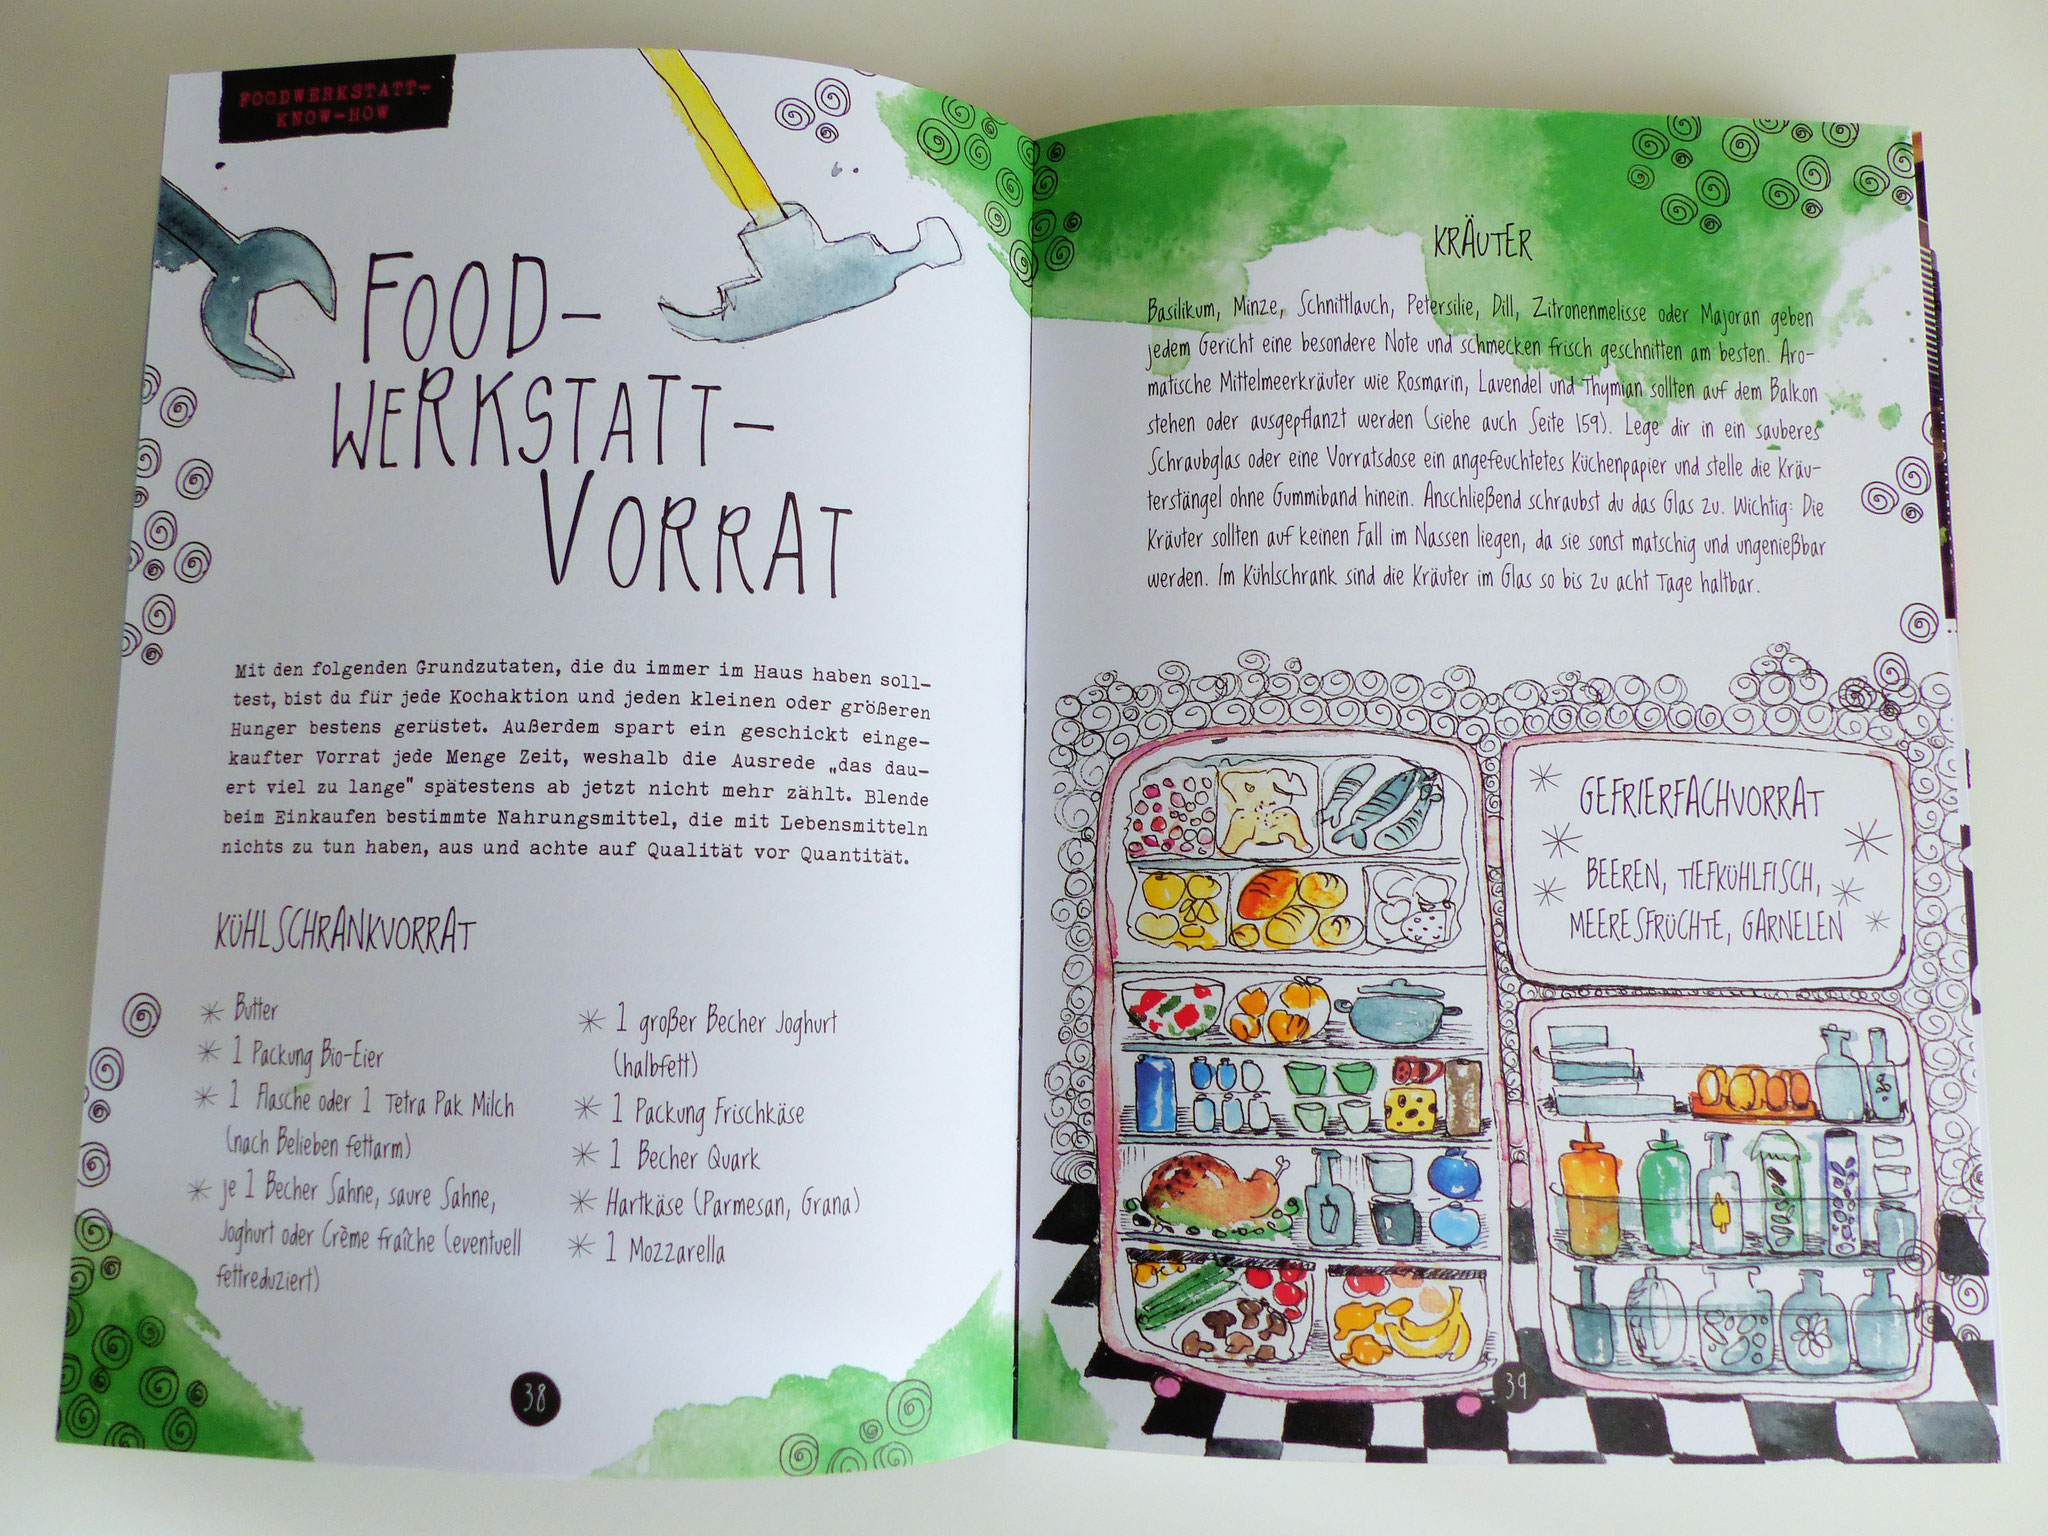 FOODWERKSTATT-
KNOW-HOW
FOOD-
WERKSTATT-
VORRAT
Mit den folgenden Grundzutaten, die du immer im Haus haben soll-
test, bist du für jede Kochaktion und jeden kleinen oder größeren
Hunger bestens gerüstet. Außerdem spart ein geschickt einge-
kaufter Vorrat jede Menge Zeit, weshalb die Ausrede „das dau-
ert viel zu lange" spätestens ab jetzt nicht mehr zählt. Blende
beim Einkaufen bestimmte Nahrungsmittel, die mit Lebensmitteln
nichts zu tun haben, aus und achte auf Qualität vor Quantität.
KÜHLSCHRANKVORRAT
Butter
1 Packung Bio-Eier
1 Flasche oder 1 Tetra Pak Milch
(nach Belieben fettarm)
je 1 Becher Sahne, saure Sahne,
Joghurt oder Crème fraîche (eventuell
fettreduziert)
1 großer Becher Joghurt
(halbfett)
1 Packung Frischkäse
1 Becher Quark
Hartkäse (Parmesan, Grana)
1 Mozzarella
38
KRÄUTER
Basilikum, Minze, Schnittlauch, Petersilie, Dill, Zitronenmelisse oder Majoran geben
jedem Gericht eine besondere Note und schmecken frisch geschnitten am besten. Aro-
matische Mittelmeerkräuter wie Rosmarin, Lavendel und Thymian sollten auf dem Balkon
stehen oder ausgepflanzt werden (siehe auch Seite 159). Lege dir in ein sauberes
Schraubglas oder eine Vorratsdose ein angefeuchtetes Küchenpapier und stelle die Kräu-
terstängel ohne Gummiband hinein. Anschließend schraubst du das Glas zu. Wichtig: Die
Kräuter sollten auf keinen Fall im Nassen liegen, da sie sonst matschig und ungenießbar
werden. Im Kühlschrank sind die Kräuter im Glas so bis zu acht Tage haltbar.
GEFRIERFACHVORRAT
BEEREN, TIEFKÜHLFISCH,
MEERESFRÜCHTE, GARNELEN
39